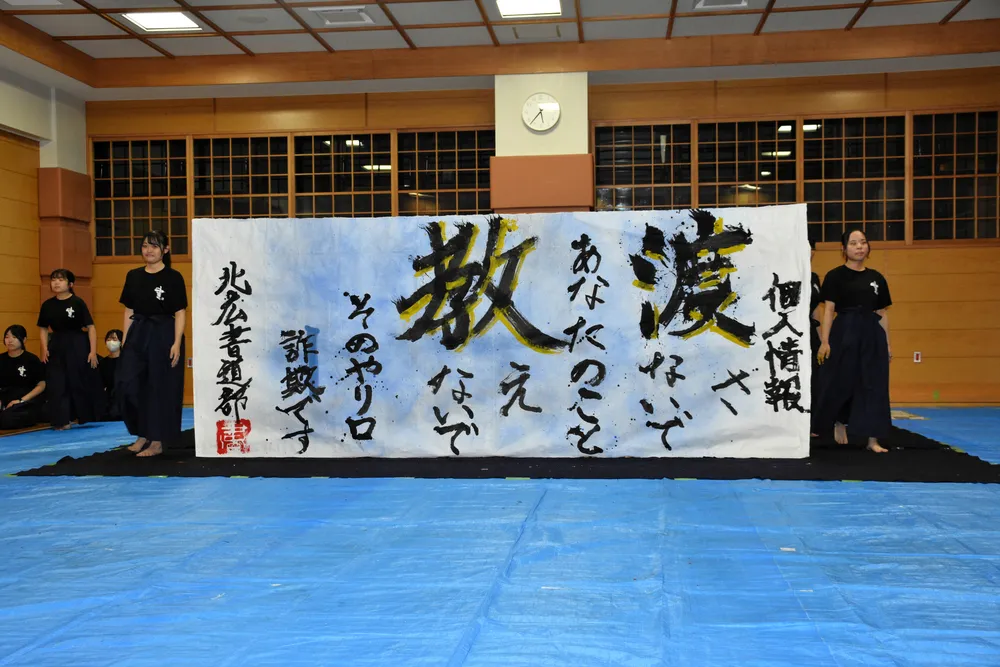 個人情報
渡さないで
あなたのこと
教えないで
そのやり口
詐欺です
北広書道部